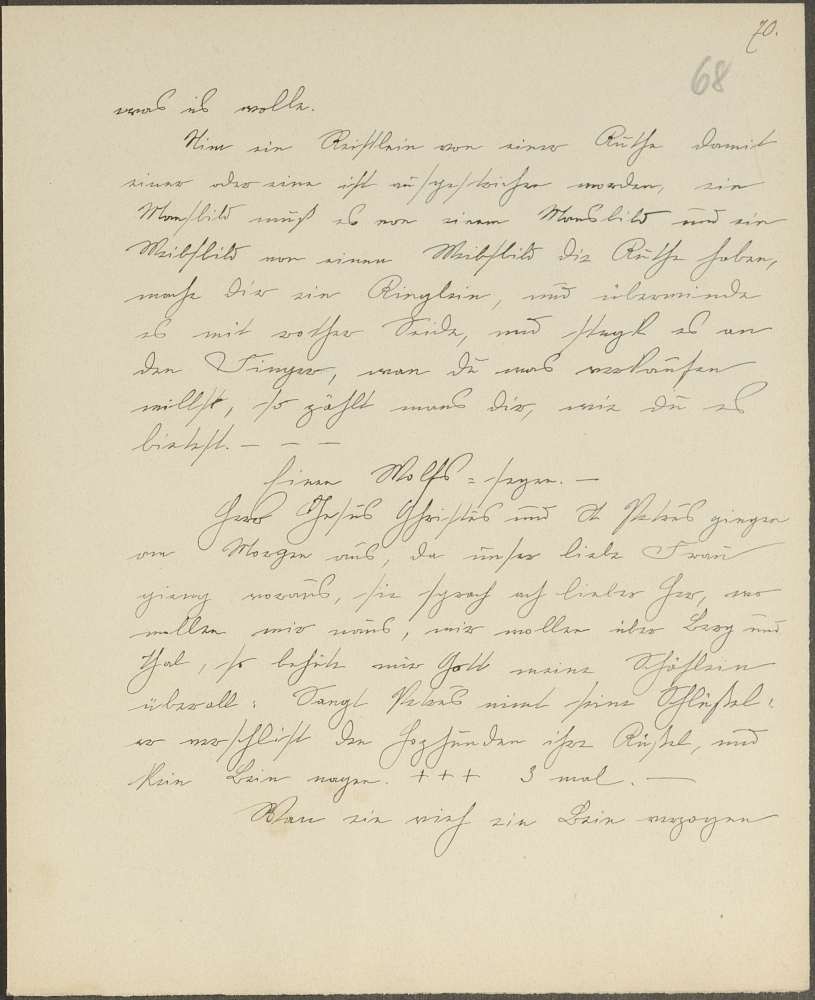 70.
68
was es wolle.
Nim ein Reistlein von einer Ruthe damit
einer oder eine ist ausgestrichen worden, ein
Mansbild muß es von einem Mansbild und ein
Weibsbild von einen Weibsbild die Ruthe haben,
mache dir ein Ringlein, und überwinde
es mit rother Seide, und stegk es an
den Finger, wan du was verkaufen
willst, so zahlt mans dir, wie du es
bietest. — — —
Einen Wolfs=segen. —
Herr Jesus Christus und St Petrus gingen
am Morgen aus, da unser liebe Frau
gieng voraus, sie sprach ach lieber Her, wo
wollen wir naus, wir wollen über Berg und
Thal, so behüte mir Gott meine Schäflein
überall: Sangt Petrus nimt seine Schlüßel,
er verschlist den Hozhunden ihre Rüßel, und
kein Bein nagen. + + + 3 mal. —
Wan ein vieh ein Bein verzogen